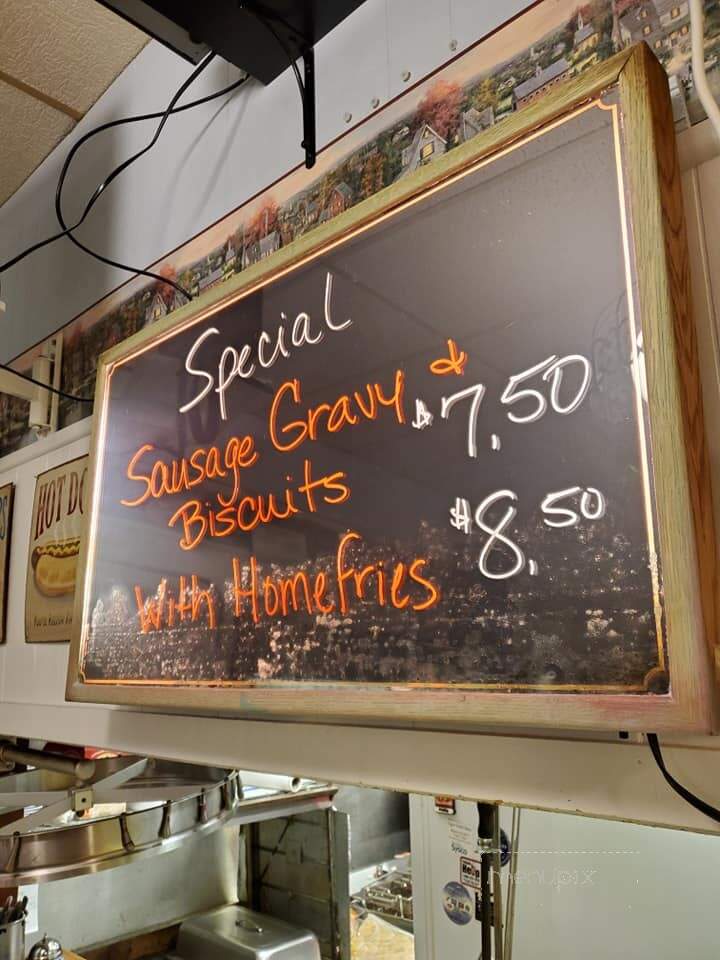 Special
Sausage Gravy & $7.50
Biscuits
With Homefries $8.50
HOT DO
menupix